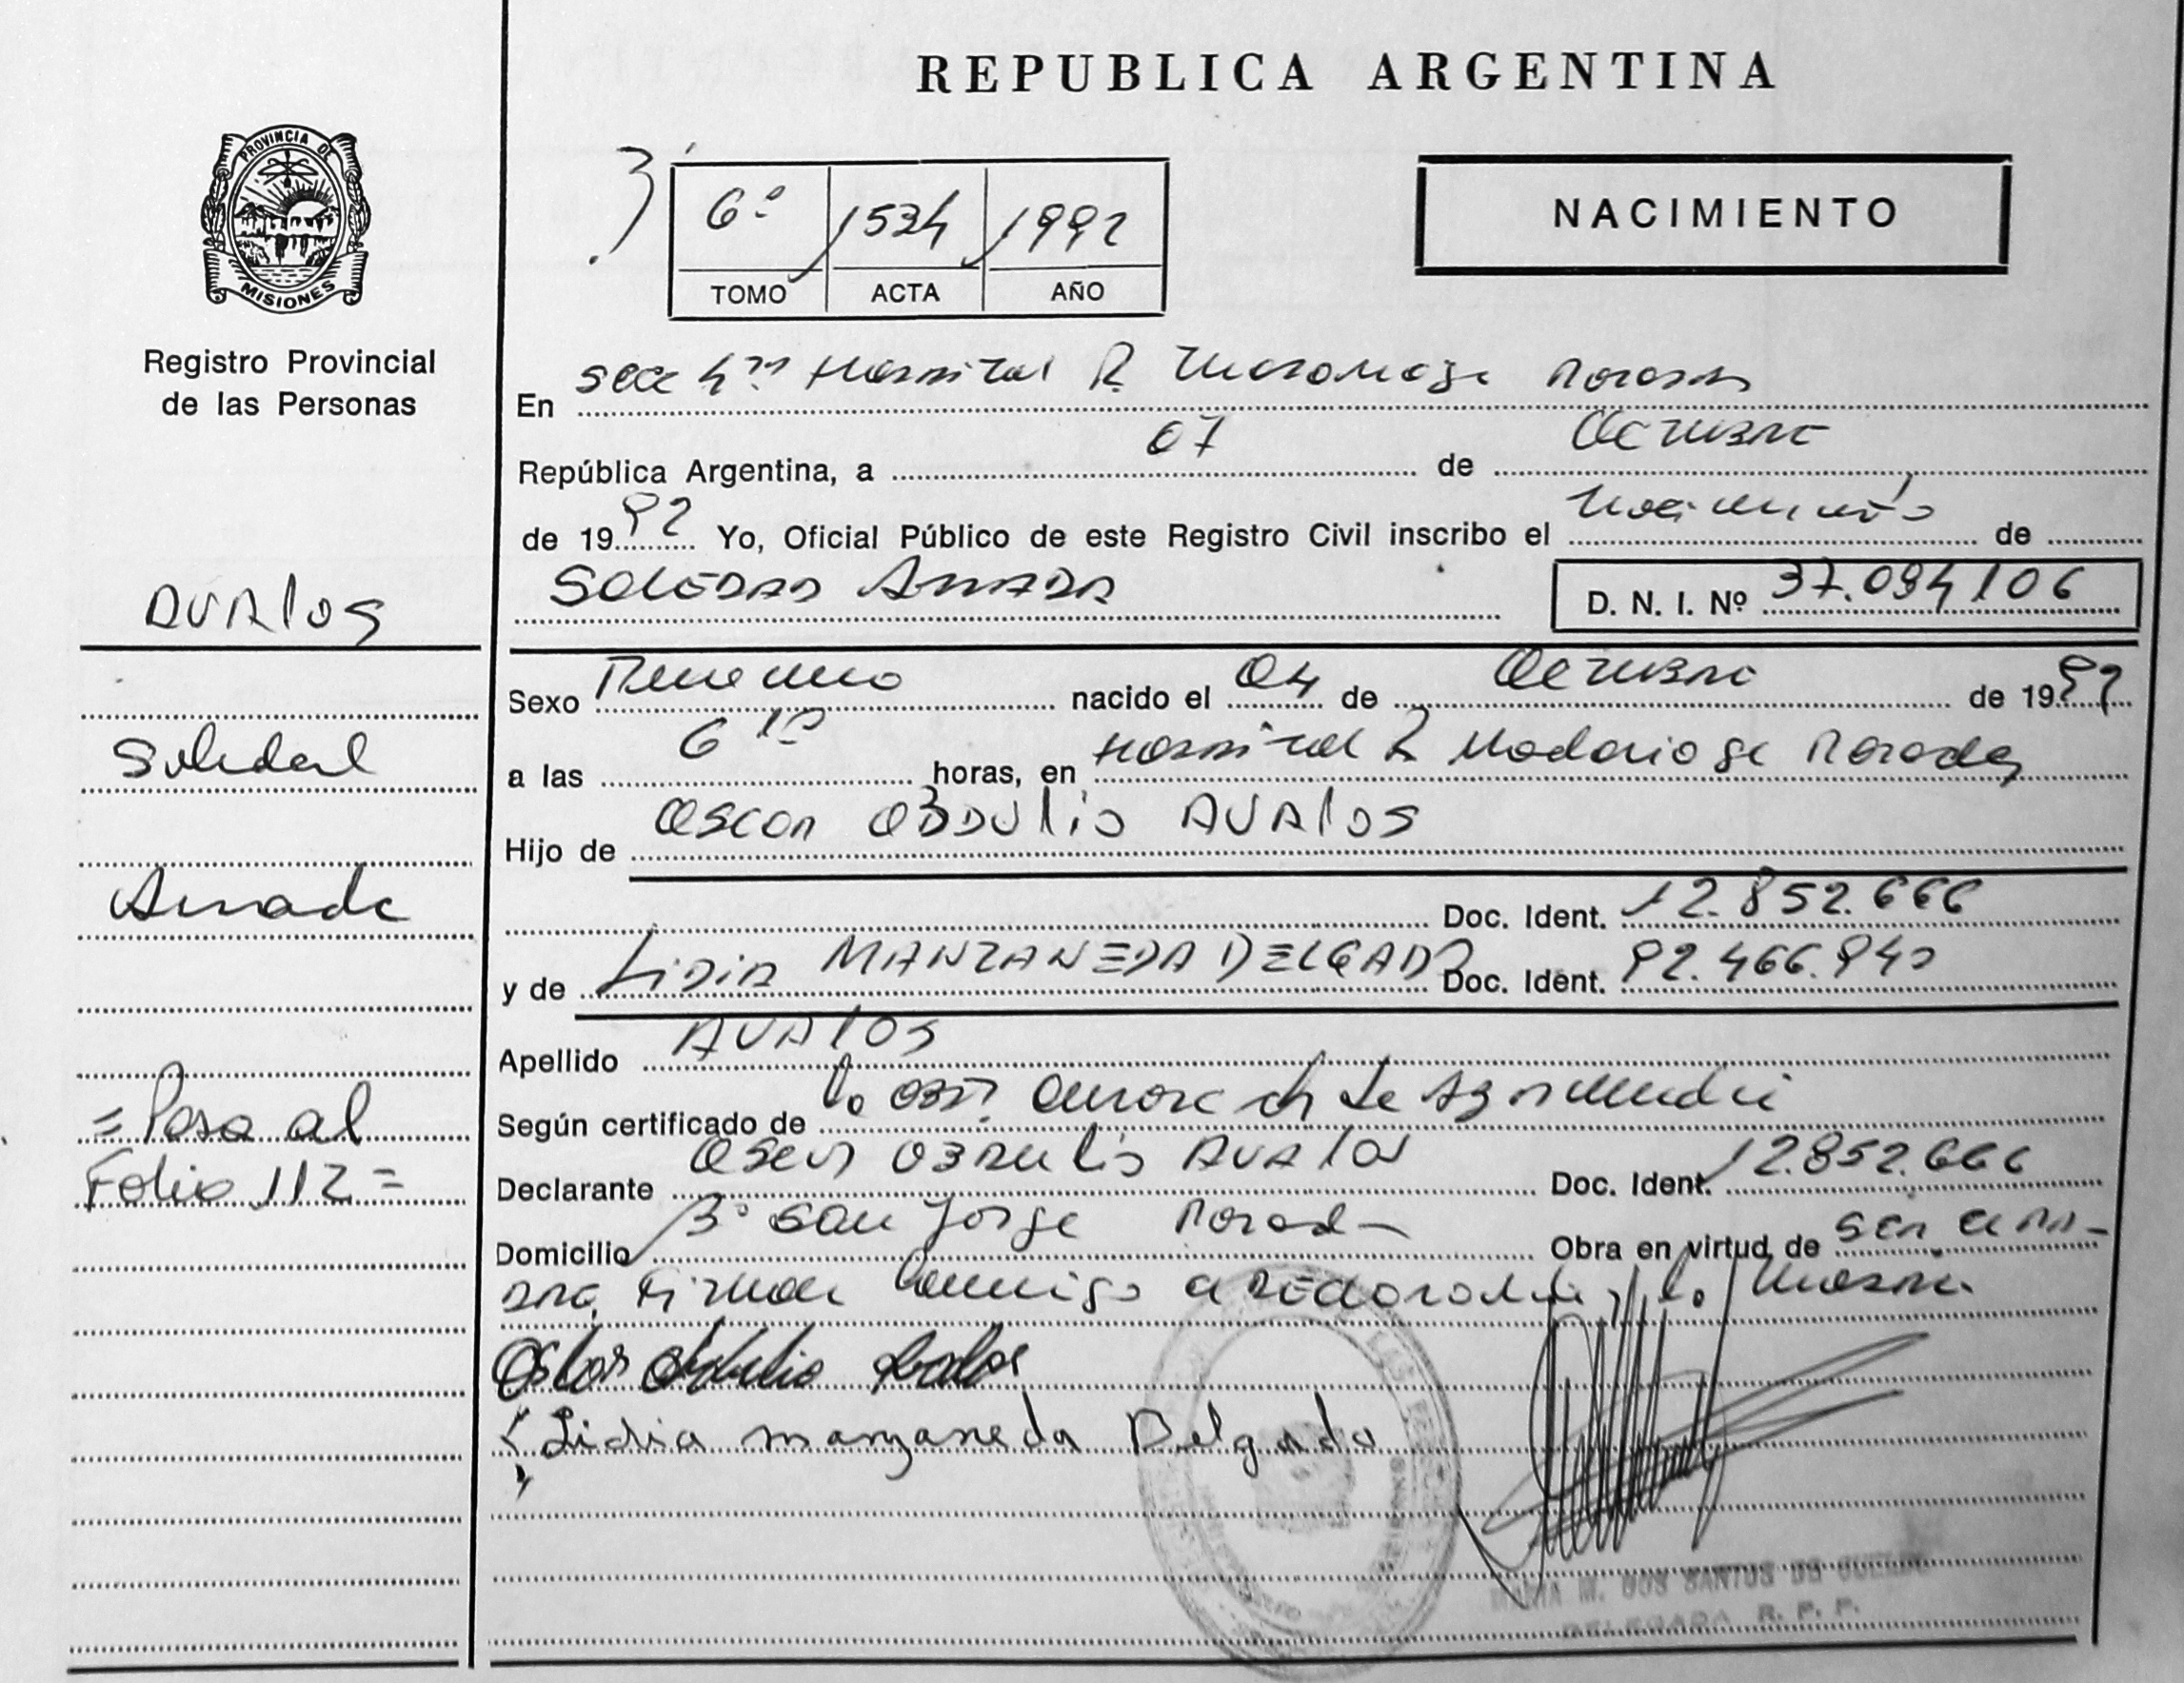 REPUBLICA ARGENTINA
PROVINCIA DE
MISIONES
Registro Provincial
de las Personas
6º 1534 1992
TOMO ACTA AÑO
NACIMIENTO
En Secc 4ta Hospital R. Madariaga Posadas
República Argentina, a 07 de Octubre
de 1992 Yo, Oficial Público de este Registro Civil inscribo el Nacimiento de
SOLEDAD AMADA D. N. I. Nº 37.084106
AVALOS
Soledad
Amada
= Pasa al
Folio 112 =
Sexo Femenino nacido el 04 de Octubre de 1992
a las 6 10 horas, en Hospital R Madariaga Posadas
Hijo de OSCAR OBDULIO AVALOS
Doc. Ident. 12.852.666
y de LIDIA MANZANEDA DELGADO Doc. Ident. 92.466.940
Apellido AVALOS
Según certificado de la Obst.
Declarante Oscar OBDULIO AVALOS Doc. Ident. 12.852.666
Domicilio Bº San Jorge Posadas Obra en virtud de ser el pa-
dre. Firma conmigo la madre
Oscar Obdulio Avalos
Lidia manzaneda Delgado
M. DOS SANTOS DE
DELEGADA R. P. P.